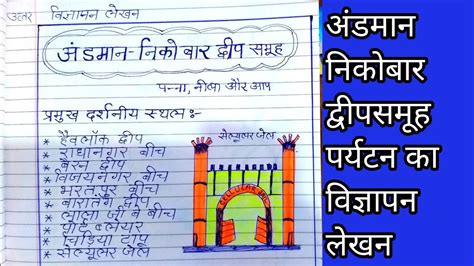 उत्तर विज्ञापन लेखन
अंडमान-निकोबार द्वीप समूह
पन्ना, नीबा और आप
प्रमुख दर्शनीय स्थल :-
* हैवलॉक द्वीप
* राधानगर बीच
* बैरन द्वीप
* विजयनगर बीच
* भरतपुर बीच
* बारातंग द्वीप
* लाला जी बे बीच
* पोर्ट ब्लेयर
* चिड़िया टापू
* सेल्यूलर जेल
सेल्यूलर जेल
CELLULAR JAIL
अंडमान
निकोबार
द्वीपसमूह
पर्यटन का
विज्ञापन
लेखन